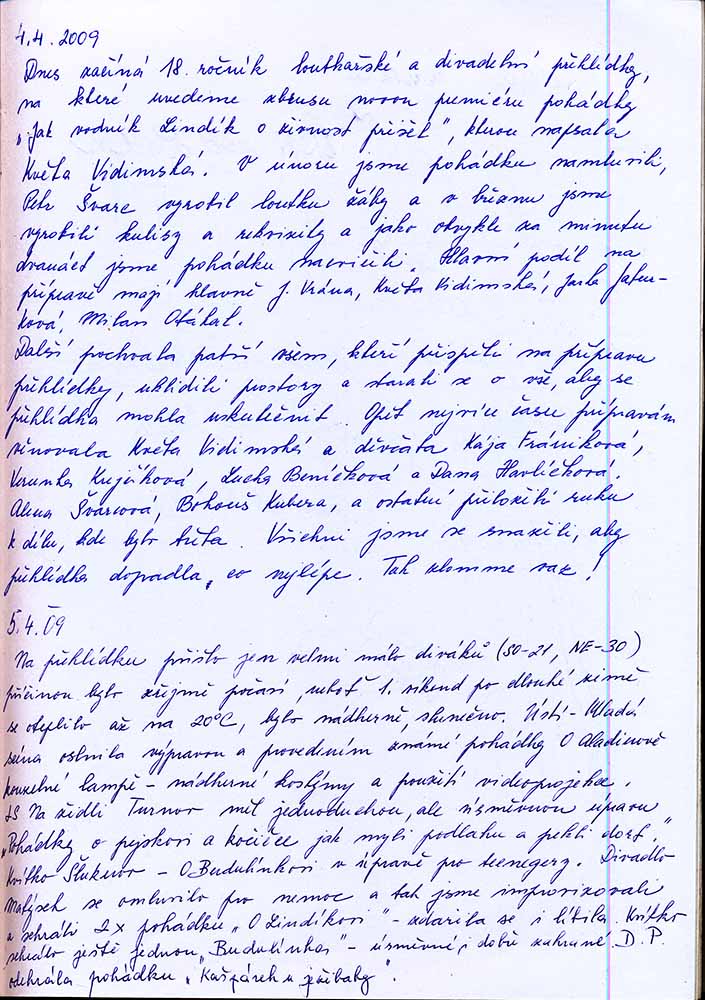 4.4. 2009
Dnes začíná 18. ročník loutkářské a divadelní přehlídky,
na které uvedeme zbrusu novou premiéru pohádky
„Jak vodník Lindík o živnost přišel", kterou napsala
Květa Vidimská. V únoru jsme pohádku namluvili,
Petr Švarc vyrobil loutku žáby a v březnu jsme
vyrobili kulisy a rekvizity a jako obvykle za minutu
dvanáct jsme pohádku nacvičili. Hlavní podíl na
přípravě mají hlavně J. Vrána, Květa Vidimská,
ková, Milan Otáhal.
Další pochvala patří všem, kteří přispěli na přípravu
přehlídky, uklidili prostory a starali se o vše, aby se
přehlídka mohla uskutečnit. Opět nejvíce času přípravám
věnovala Květa Vidimská a děvčata Kája Fráníková,
Verunka Krejčíková, Lucka Beníčková a Dana Havlíčková.
Alena Švarcová, Bohouš Kubera, a ostatní přiložili ruku
k dílu, kde bylo třeba. Všichni jsme se snažili, aby
přehlídka dopadla co nejlépe. Tak zlomme vaz!
5.4.09
Na přehlídku přišlo jen velmi málo diváků (SO-21, NE-30)
příčinou bylo zřejmě počasí, neboť 1. víkend po dlouhé zimě
se oteplilo až na 20°C, bylo nádherně, slunečno. Ústí - Mladá
scéna oslnila výpravou a provedením známé pohádky O Aladinově
kouzelné lampě - nádherné kostýmy a použití videoprojekce.
LS Na židli Turnov měl jednoduchou, ale úsměvnou úpravu
„Pohádky o pejskovi a kočičce jak myli podlahu a pekli dort."
Kvítko Šluknov - O Budulínkovi v úpravě pro teenegery. Divadlo
Malýsek se omluvilo pro nemoc a tak jsme improvizovali
a sehráli 2x pohádku „O Lindíkovi" - zdařila se i líbila. Kvítko
sehrálo ještě jednou „Budulínka" - úsměvné i dobře zahrané. D.P.
odehrála pohádku „Kašpárek u ježibaby".